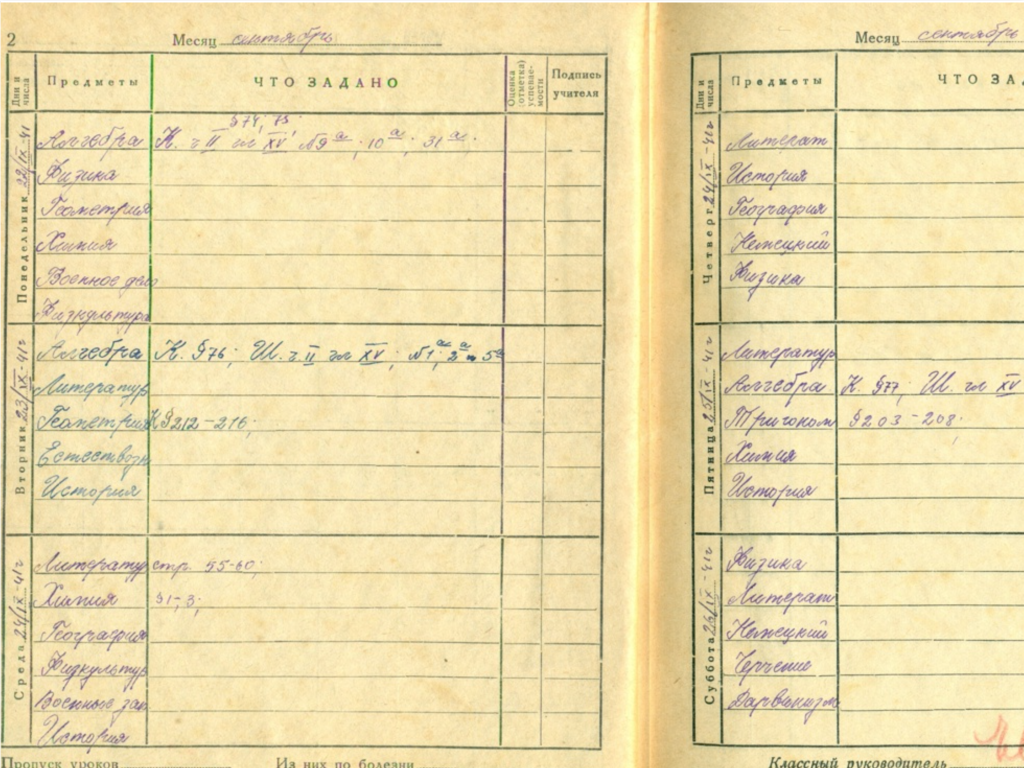 2 Месяц сентябрь
Дни и числа Предметы ЧТО ЗАДАНО Оценка (отметка) успевае-мости Подпись учителя
Понедельник 22/IX-41
§74, 75;
Алгебра К. ч II гл XV №9а; 10а; 31а.
Физика
Геометрия
Химия
Военное дело
Физкультура
Вторник 23/IX-41г
Алгебра К. §76; Ш. ч. II гл XV; №1а; 2а и 5а
Литератур
Геометрия К §212-216;
Естествозн
История
Среда 24/IX-41г
Литератур стр. 55-60;
Химия §1-3;
География
Физкультур
Военные зан
История
Пропуск уроков Из них по болезни
Месяц сентябрь
Дни и числа Предметы ЧТО ЗАД
Четверг 24/IX-41г
Литерат
История
География
Немецкий
Физика
Пятница 25/IX-41г
Литератур
Алгебра К. §77, Ш. гл XV
Тригоном §203-208;
Химия
История
Суббота 26/IX-41г
Физика
Литерат
Немецкий
Черчение
Дарвинизм
Классный руководитель